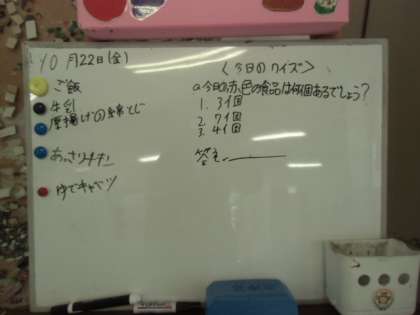 10月22日(金)
ご飯
牛乳
厚揚げの卵とじ
あっさり
ゆでキャベツ
〈今日のクイズ〉
Q.今日の赤色の食品は何個あるでしょう?
1. 3個
2. 7個
3. 4個
答え.